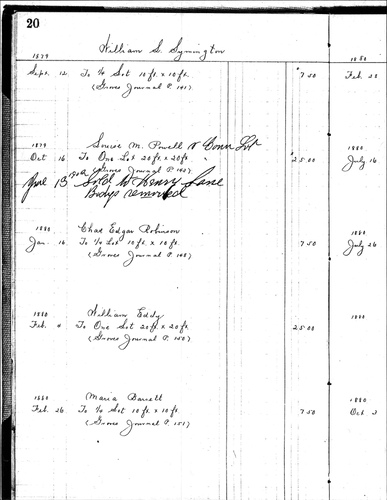 20
William S. Symington
1879 1880
Sept. 12 To 1/4 Lot 10 ft. x 10 ft. $7.50 Feb 20
(Graves Journal P. 141)
1879 M. Powell Down Lot 1880
Oct 16 To One Lot 20 ft x 20 ft " $25.00 July 16
(Graves Journal P.
June 13 Sold to Henry Lane
Bodys removed
1880 Chas Edgar Robinson 1880
Jan. 16 To 1/4 Lot 10 ft. x 10 ft. 7.50 July 26
(Graves Journal P. 148)
1880 William Eddy 1880
Feb. 4 To One Lot 20 ft. x 20 ft. 25.00
(Graves Journal P. 150)
1880 Maria Barrett 1880
Feb. 26 To 1/4 Lot 10 ft. x 10 ft. 7.50 Oct 3
(Graves Journal P. 151)